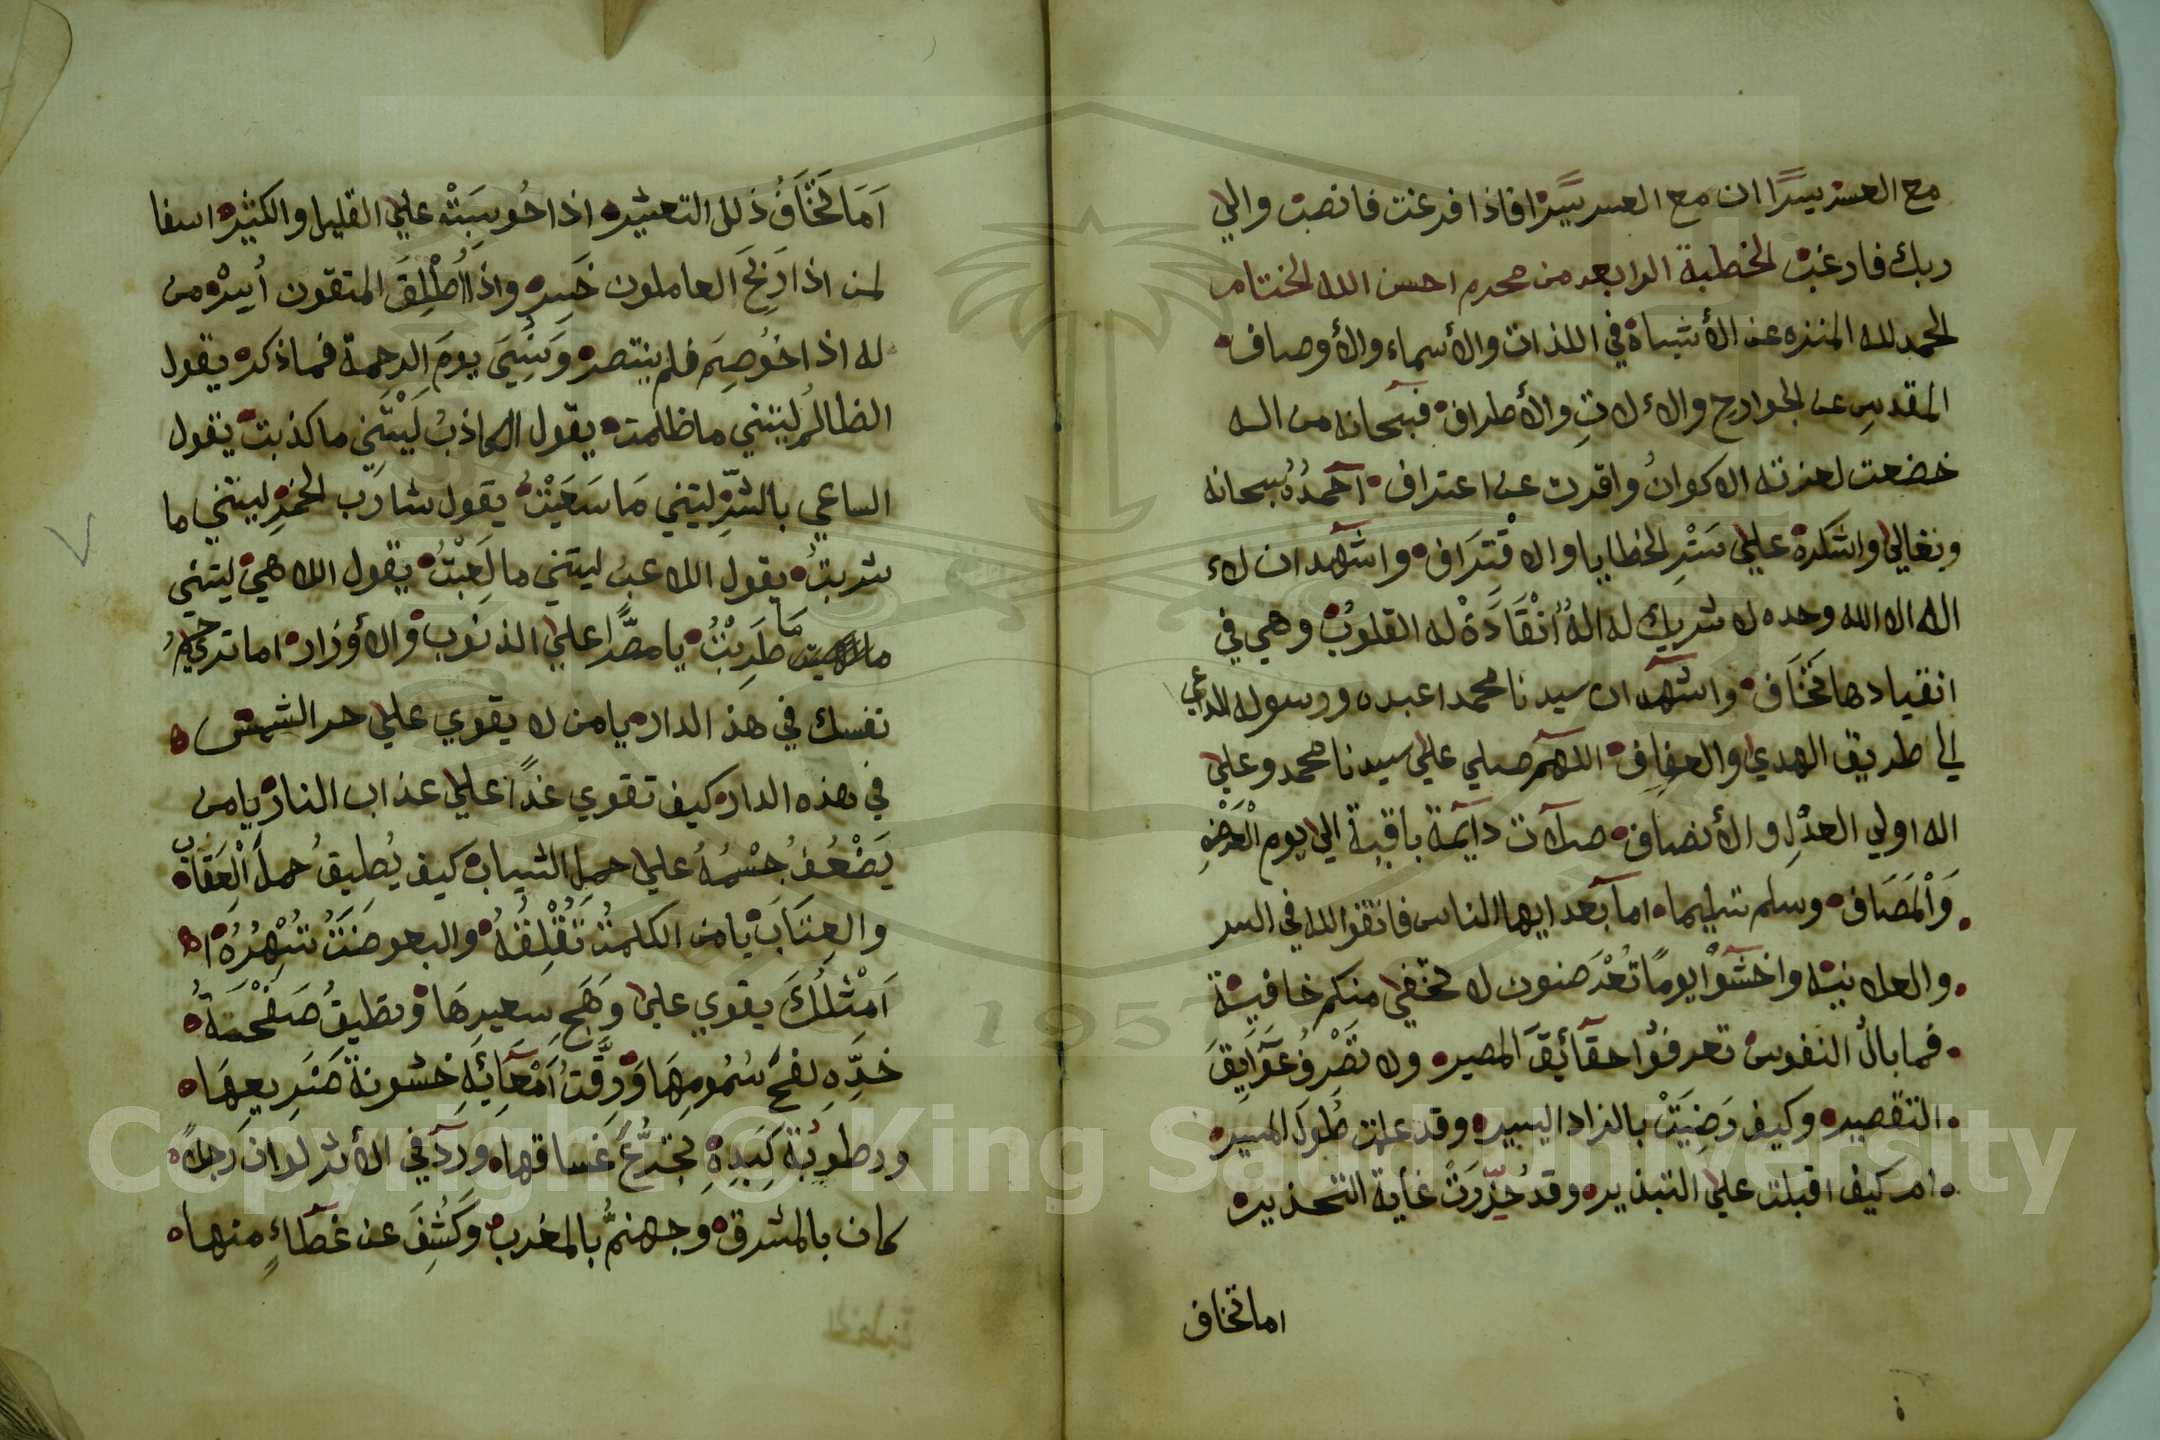 مع العسر يسرا ان مع العسر يسرا فاذا فرغت فانصب والي
ربك فارغب الخطبة الرابعه من محرم احسن الله الختام
الحمد لله المنزه عن الأشباة في اللذات والأسماء والأوصاف
المقدسِ عن الجوارح والاءلاتِ والأطراف فسبحانه من اله
خضعت لعزته الاكوانُ واقرت عن اعتراف احمدُهُ سبحانه
وتعالي واشكره علي سَتْرِ الخطايا والاقْتَراف واشهد ان لاء
اله الا الله وحده لا شريك له الهُ انْقَادَةْ له القلوبُ وهي في
انقيادها تَخَاف واشهد ان سيدنا محمدا عبده ورسوله الداعي
الي طريق الهدي والعفاف اللهم صلي علي سيدنا محمد وعلي
اله اولي العدْلِ والأنصاف صلآت دآيمة باقية الي يوم الْعَرْضِ
وَالْمَصَاف وسلم تسليما اما بعد ايها الناس فاتقوا الله في السر
والعلانيه واخشَوْا يومًا تُعْرَضون لا تخفي منكم خافية
فما بالُ النفوس تعرفُوا حقآئِقَ المصير ولا تَصْرِفُ عَوَآيِقَ
التقصير وكيف رَضِيَتْ بالزاد اليسير وقد علمت طُولَ المسير
ام كيف اقبلت علي التبذير وقد حُذِّرَتْ غاية التحذير
اما تخاف
اَمَا تَخَافُ ذلك التعشير اذا حُوسِبَتْ علي القليل والكثير اسفا
لمن اذا رَبِحَ العاملون خَسِر واذا اُطْلِقَ المتقون أُسِرْ من
له اذا خُوصِمَ فلم ينتصر وَنُسِيَ يومَ الرحمة فما ذكر يقول
الظالمُ ليتني ما ظلمت يقول الكاذبُ لَيْتَنِي ما كذبت يقول
الساعي بالشّرِّ ليتني مَا سَعَيْتُ يقول شارب الخمرِ ليتني ما
شربتُ يقول اللاعبُ ليتني ما لَعِبْتُ يقول اللاهي ليتني
ما مَا طَرِبْتُ يا مصًّرا علي الذنوب والأوزار اما ترحمُ
نفسك في هذ الدار يا من لا يقوي علي حر الشمس
في هذه الدار كيف تقوي غدًا علي عذاب النار يا من
يَضْعُفُ جسْمُهُ علي حملِ الثياب كيف يُطِيقُ حملَ الْعِقَاب
والعِتَاب يا من الكلمةُ تُقْلِقُهُ والبعوضَتُ تُسْهِرُهُ
اَمْثلُكَ يقوي علي وَهَجِ سعيرِهَا وتطيقُ صَفْحَةُ
خدِّهِ لفحَ سُمُومِهَا وَرِقَّتُ اَمْعآئِهِ خشونةَ ضَرِيعِهَا
ورطوبَةُ كِبَدِهِ تجرُّعَ غساقها ورَدَ في الأثر لو ان رجلاً
كان بالمشرق وجهنمُّ بالمغرب وَكُشِفَ عن غطآءٍ منها
Copyright © King Saud University
1957